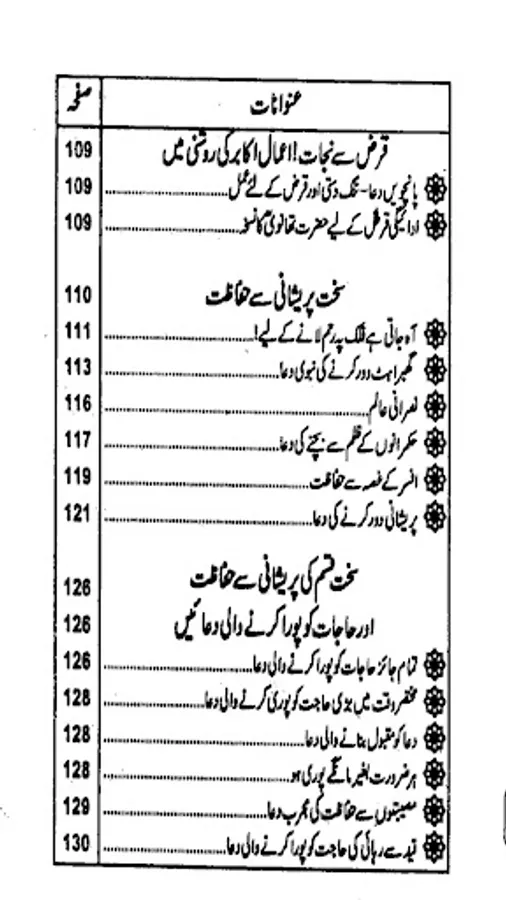 عنوانات صفحہ
قرض سے نجات! اعمال اکابر کی روشنی میں 109
پانچویں دعا- تنگ دستی اور قرض کے لئے عمل 109
ادائیگی قرض کے لیے حضرت تھانویؒ کا نسخہ 109
سخت پریشانی سے حفاظت 110
آہ جاتی ہے فلک پہ رحم لانے کے لیے! 111
گھبراہٹ دور کرنے کی نبوی دعا 113
نصرانی عالم 116
حکمرانوں کے ظلم سے بچنے کی دعا 117
افسر کے غصہ سے حفاظت 119
پریشانی دور کرنے کی دعا 121
سخت قسم کی پریشانی سے حفاظت 126
اور حاجات کو پورا کرنے والی دعائیں 126
تمام جائز حاجات کو پورا کرنے والی دعا 126
مختصر وقت میں بڑی حاجت کو پوری کرنے والی دعا 128
دعا کو مقبول بنانے والی دعا 128
ہر ضرورت بغیر مانگے پوری ہو 128
مصیبتوں سے حفاظت کی مجرب دعا 129
قید سے رہائی کی حاجت کو پورا کرنے والی دعا 130